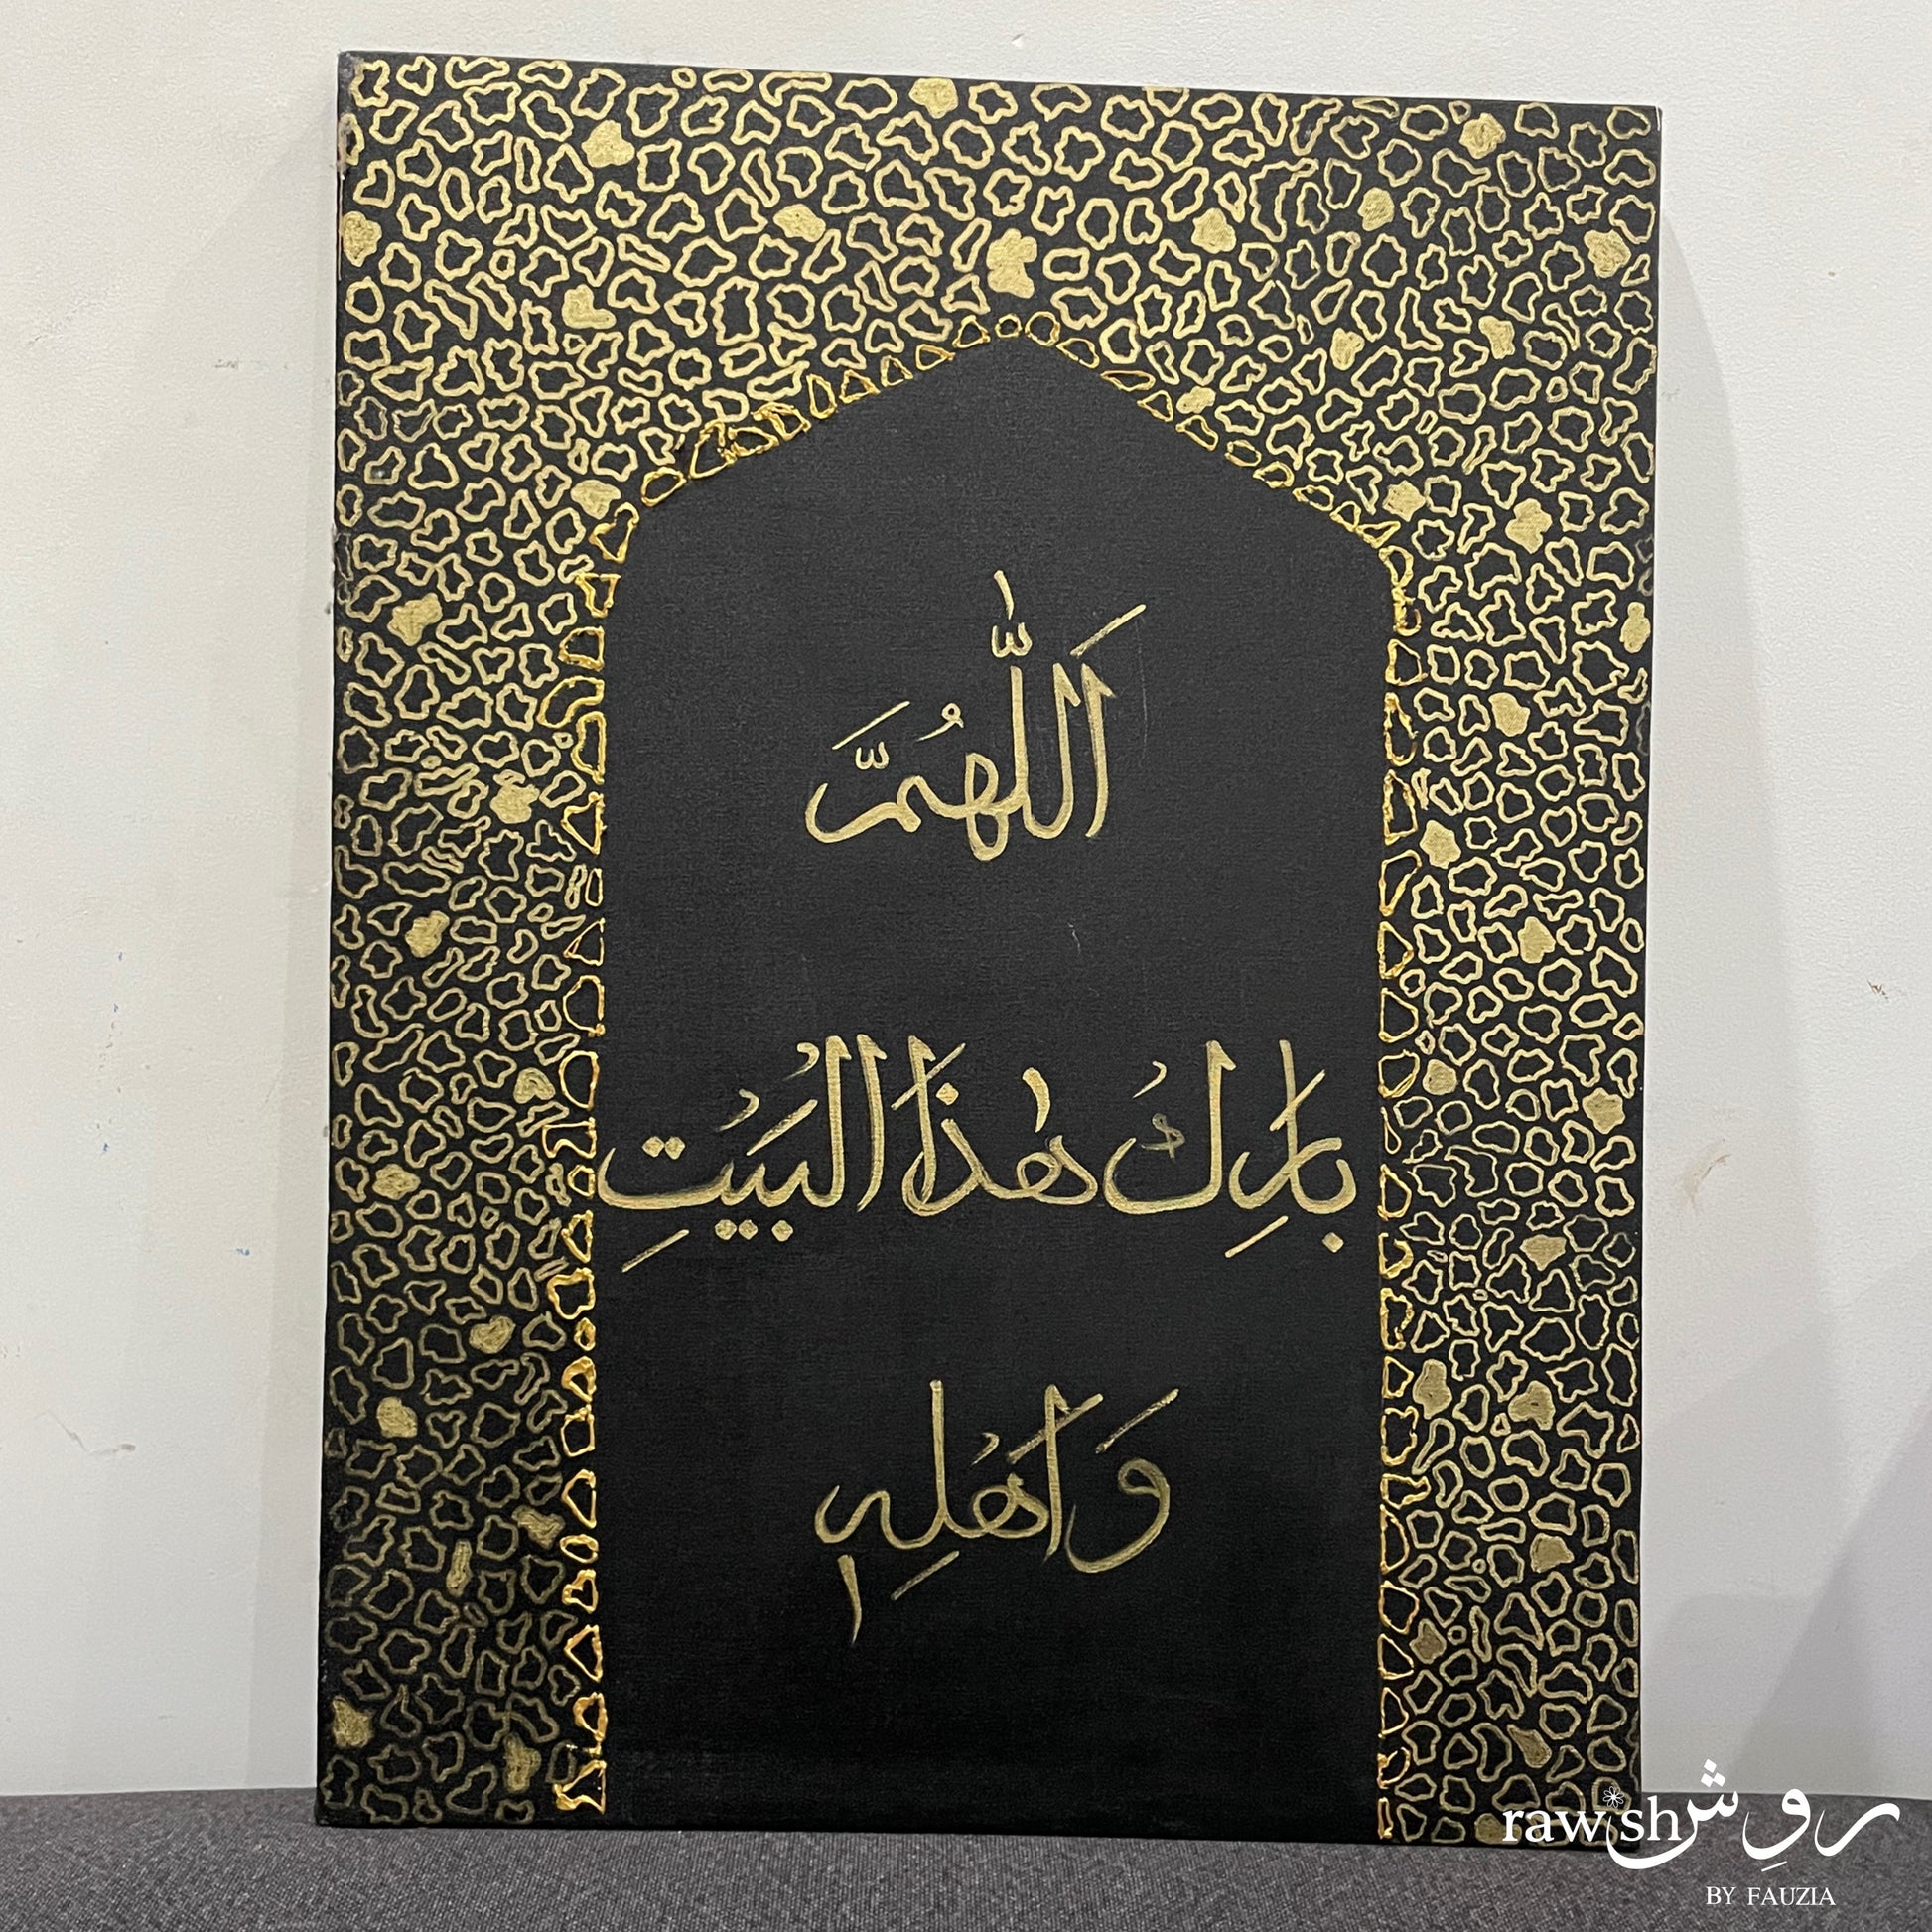 اَللّٰهُمَّ
بَارِكْ هٰذَا الْبَيْتِ
وَاَهْلِهٖ
rawish روِش
BY FAUZIA